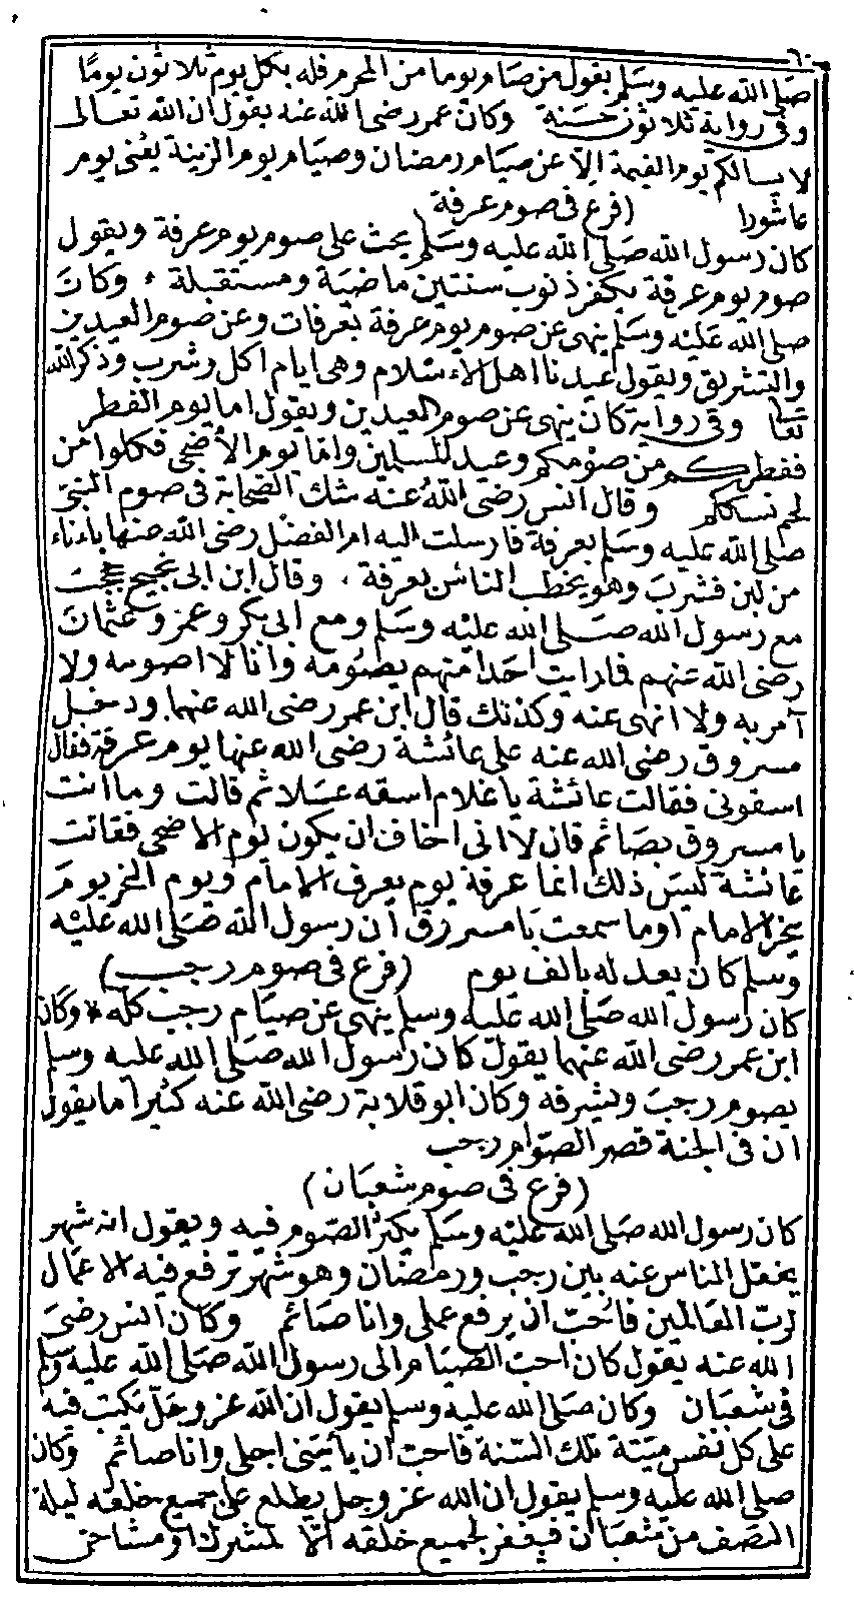 ٦٠
صلى الله عليه وسلم يقول من صام يوما من المحرم فله بكل يوم ثلاثون يوما
وفى رواية ثلاثون حسنة وكان عمر رضى الله عنه يقول ان الله تعالى
لا يسالكم يوم القيمة الا عن صيام رمضان وصيام يوم الزينة يعنى يوم
عاشورا (فرع فى صوم عرفة
كان رسول الله صلى الله عليه وسلم يحث على صوم يوم عرفة ويقول
صوم يوم عرفة يكفر ذنوب سنتين ماضية ومستقبلة وكان
صلى الله عليه وسلم ينهى عن صوم يوم عرفة بعرفات وعن صوم العيدين
والتشريق ويقول عيدنا اهل الاسلام وهى ايام اكل وشرب وذكر الله
تعا وفى رواية كان ينهى عن صوم العيدين ويقول اما يوم الفطر
ففطركم من صومكم وعيد للمسلمين واما يوم الأضحى فكلوا من
لحم نسككم وقال انس رضى الله عنه شك الصحابة فى صوم النبى
صلى الله عليه وسلم بعرفة فارسلت اليه ام الفضل رضى الله عنها باناء
من لبن فشرب وهو يخطب الناس بعرفة ، وقال ابن ابى نجيح حججت
مع رسول الله صلى الله عليه وسلم ومع ابى بكر وعمر وعثمان
رضى الله عنهم فما رايت احدا منهم يصومه وانا لا اصومه ولا
آمر به ولا انهى عنه وكذلك قال ابن عمر رضى الله عنهما ودخل
مسروق رضى الله عنه على عائشة رضى الله عنها يوم عرفة فقال
اسقونى فقالت عائشة يا غلام اسقه عسلا ثم قالت وما انت
يا مسروق بصائم قال لا انى اخاف ان يكون يوم الاضحى فقالت
عائشة ليس ذلك انما عرفة يوم يعرف الامام ويوم النحر يوم
ينحر الامام اوما سمعت يا مسروق ان رسول الله صلى الله عليه
وسلم كان يعدله بالف يوم (فرع فى صوم رجب)
كان رسول الله صلى الله عليه وسلم ينهى عن صيام رجب كله * وكان
ابن عمر رضى الله عنهما يقول كان رسول الله صلى الله عليه وسلم
يصوم رجب ويشرفه وكان ابو قلابة رضى الله عنه كثيرا ما يقول
ان فى الجنة قصر الصوام رجب
(فرع فى صوم شعبان)
كان رسول الله صلى الله عليه وسلم يكثر الصوم فيه ويقول انه شهر
يغفل الناس عنه بين رجب ورمضان وهو شهر ترفع فيه الاعمال
لرب العالمين فاحب ان يرفع عملى وانا صائم وكان انس رضى
الله عنه يقول كان احب الصيام الى رسول الله صلى الله عليه وسلم
فى شعبان وكان صلى الله عليه وسلم يقول ان الله عز وجل يكتب فيه
على كل نفس ميتة تلك السنة فاحب ان يأتينى اجلى وانا صائم وكان
صلى الله عليه وسلم يقول ان الله عز وجل يطلع على جميع خلقه ليلة
النصف من شعبان فيغفر لجميع خلقه الا لمشرك او مشاحن